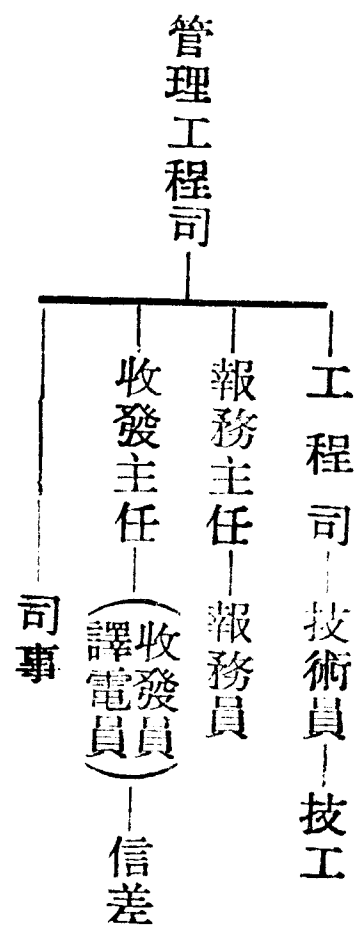 管理工程司
工程司
技術員
技工
報務主任
報務員
收發主任
(收發員
譯電員)
信差
司事